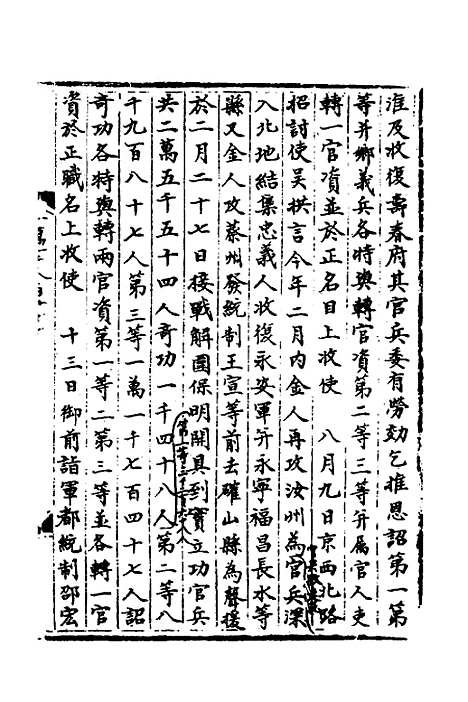 淮及收復壽春府其官兵委有勞効乞推恩詔第一第
等并鄉義兵各特與轉官資第二等三等并屬官人吏
轉一官資並於正名目上收使　八月九日京西北路
招討使吳拱言今年二月内金人再攻汝州為官兵深
入北地結集忠義人收復永安軍并永寧福昌長水等
縣又金人攻蔡州發統制王宣等前去確山縣為聲援
於二月二十七日接戰解圍保明開具到實立功官兵
共二萬五千五十四人奇功一千四十八人第二等八
千九百八十七人第三等一萬一千七百四十七人詔
奇功各特與轉兩官資第一等二第三等並各轉一官
資於正職名上收使　十三日御前諸軍都統制邵宏